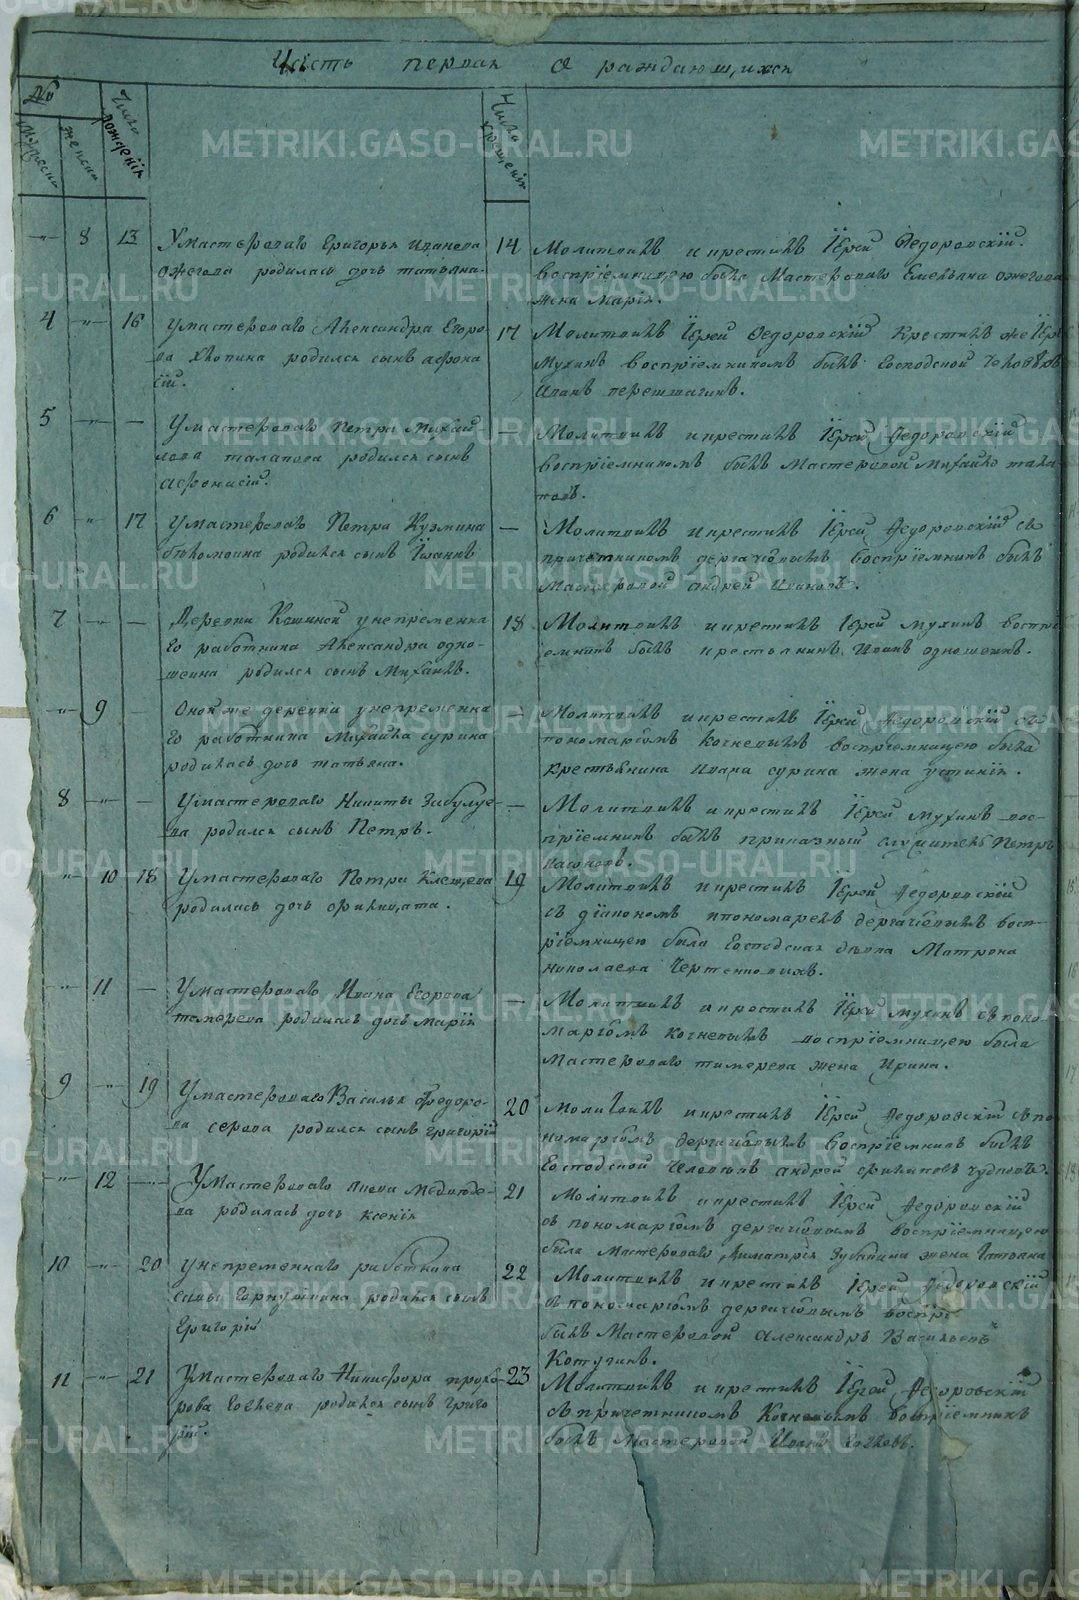 Часть первая о раждающихся
№
мужеска
женска
Число рождения
Число крещения
8 13 У мастероваго Григорья Иванова
ожегова родилась дочь татьяна.
14 Молитвилъ и крестилъ Іерей Федоровскій.
воспріемницею была Мастероваго Емельяна ожегова
жена Марія.
4 16 У мастероваго Александра Егоро-
ва хлопина родился сынъ афона
сій.
17 Молитвилъ Іерей Федоровскій Крестилъ же Іер
Мухинъ воспріемникомъ былъ Господской человѣкъ
Иванъ
5 У мастероваго Петра Михай-
лова талапова родился сынъ
Афонасій.
Молитвилъ и крестилъ Іерей Федоровскій
воспріемникомъ былъ Мастеровой Михайло тала
повъ.
6 17 У мастероваго Петра Кузмина
родился сынъ Іоаннъ
Молитвилъ и крестилъ Іерей Федоровскій съ
причетникомъ дергачовымъ Воспріемникъ былъ
Мастеровой андрей Ивановъ.
7 Деревни у непременна
го работника Александра одно-
шеина родился сынъ Михаилъ.
18 Молитвилъ и крестилъ Іерей мухинъ воспрі
емникъ былъ крестьянинъ Иванъ одношеинъ.
9 Оной же деревни у непременна
го работника Михайла сурина
родилась дочь татьяна.
Молитвилъ и крестилъ Іерей Федоровскій съ
пономаремъ Кочневымъ воспріемницею была
крестьянина Ивана сурина жена устинія.
8 У мастероваго Никиты
ва родился сынъ Петръ.
Молитвилъ и крестилъ Іерей Мухинъ вос-
пріемникъ былъ приказный служитель Петръ
10 18 У мастероваго Петра Клещева
родилась дочь филицата.
19 Молитвилъ и крестилъ Іерей Федоровскій
съ діакономъ и пономаремъ дергачовымъ восп-
ріемницею была Господская девка Матрона
николаева Чертенковыхъ.
11 У мастероваго Ивана Егорова
тимерева родилась дочь Марія
Молитвилъ и крестилъ Іерей мухинъ съ поно
маремъ кочневымъ воспріемницею была
Мастероваго тимерева жена Ирина.
9 19 У мастероваго Василья Федоро-
ва серова родился сынъ григорій
20 Молитвилъ и крестилъ Іерей Федоровскій съ по
номаремъ дергачовымъ Воспріемникъ былъ
Господской человѣкъ андрей чудновъ.
12 У Мастероваго Медведе-
ва родилась дочь ксенія
21 Молитвилъ и крестилъ Іерей Федоровскій
съ пономаремъ дергачовымъ воспріемницею
была Мастероваго Димитрія Зубанина жена Татьяна
10 20 у непременнаго работника
родился сынъ
Григорій
22 Молитвилъ и крестилъ Іерей Федоровскій
съ пономаремъ дергачовымъ воспрі
былъ Мастеровой Александръ Васильевъ
Котугинъ.
11 21 У Мастероваго Никифора прохо-
рова родился сынъ Григо
рій.
23 Молитвилъ и крестилъ Іерей Федоровскій
съ причетникомъ Кочневымъ воспріемникъ
былъ Мастеровой Иванъ
METRIKI.GASO-URAL.RU